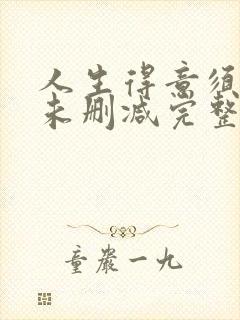 人生得意须
未删减完整
童严一九